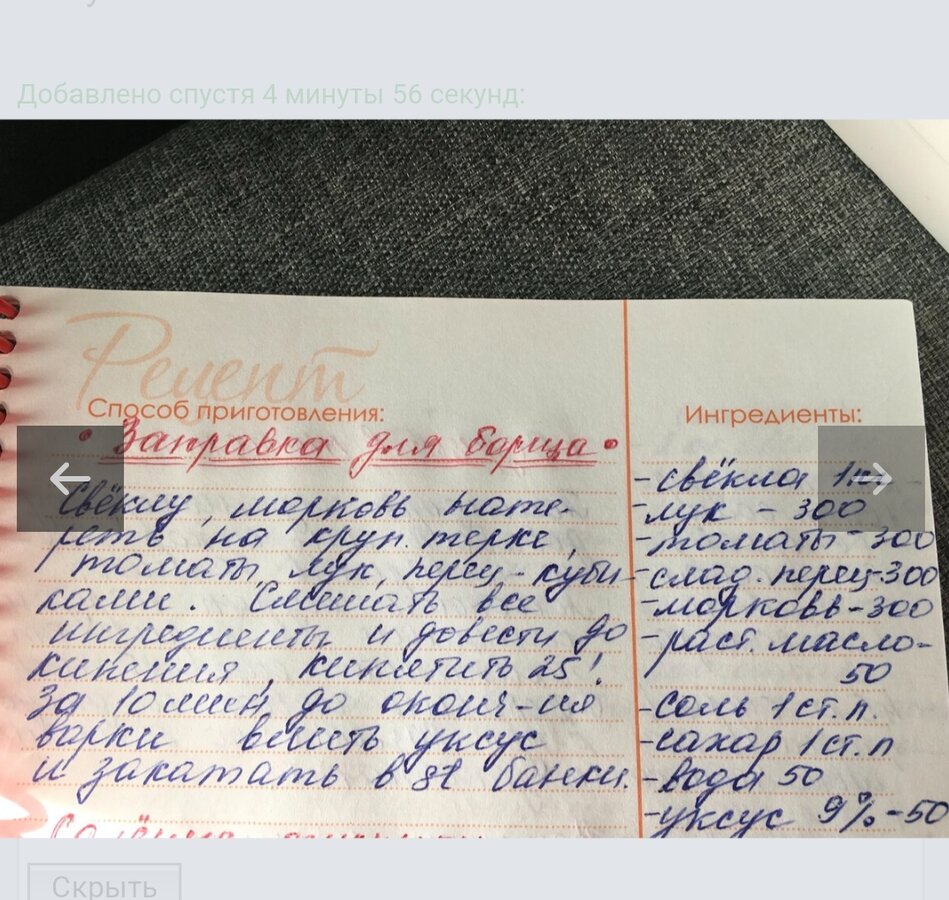 Добавлено спустя 4 минуты 56 секунд:
Рецепт
Способ приготовления:
• Заправка для борща •
Свёклу, морковь нате-
реть на круп. терке,
томаты, лук, перец - куби-
ками. Смешать все
ингредиенты и довести до
кипения, кипятить 25!
За 10 мин до оконч-ия
варки влить уксус
и закатать в банки.
Ингредиенты:
- свёкла 1кг
- лук - 300
- томаты - 300
- слад. перец - 300
- морковь - 300
- раст. масло -
50
- соль 1 ст. л.
- сахар 1 ст. л
- вода 50
- уксус 9% - 50
Скрыть